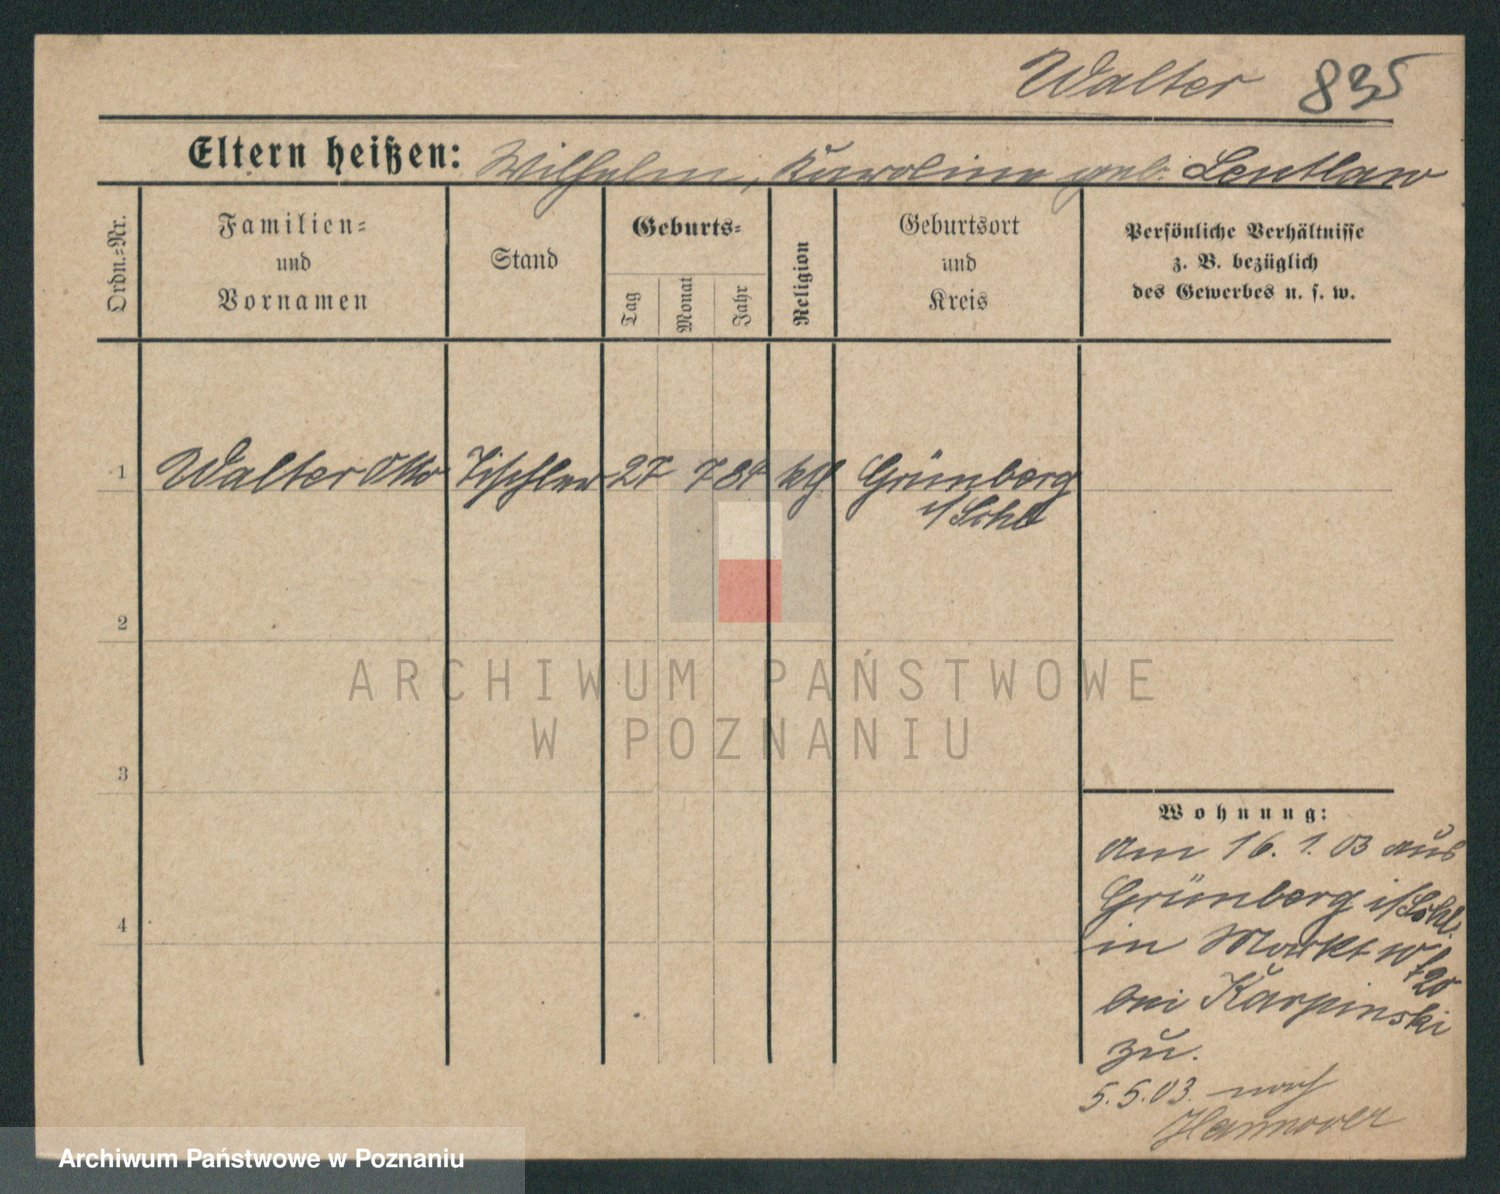 Walter 835
Eltern heißen: Wilhelm, Karoline geb.
Ordn.=Nr.
Familien=
und
Vornamen
Stand
Geburts=
Tag
Monat
Jahr
Religion
Geburtsort
und
Kreis
Persönliche Verhältnisse
z. B. bezüglich
des Gewerbes u. s. w.
1 Walter Otto Tischler 27 7 Grünberg
i/Schl
2
ARCHIWUM PAŃSTWOWE
W POZNANIU
3
4
Wohnung:
Am 16. 1. 03 aus
Grünberg i/Schl.
in Markt
bei Karpinski
zu.
5. 5. 03. nach
Hannover
Archiwum Państwowe w Poznaniu